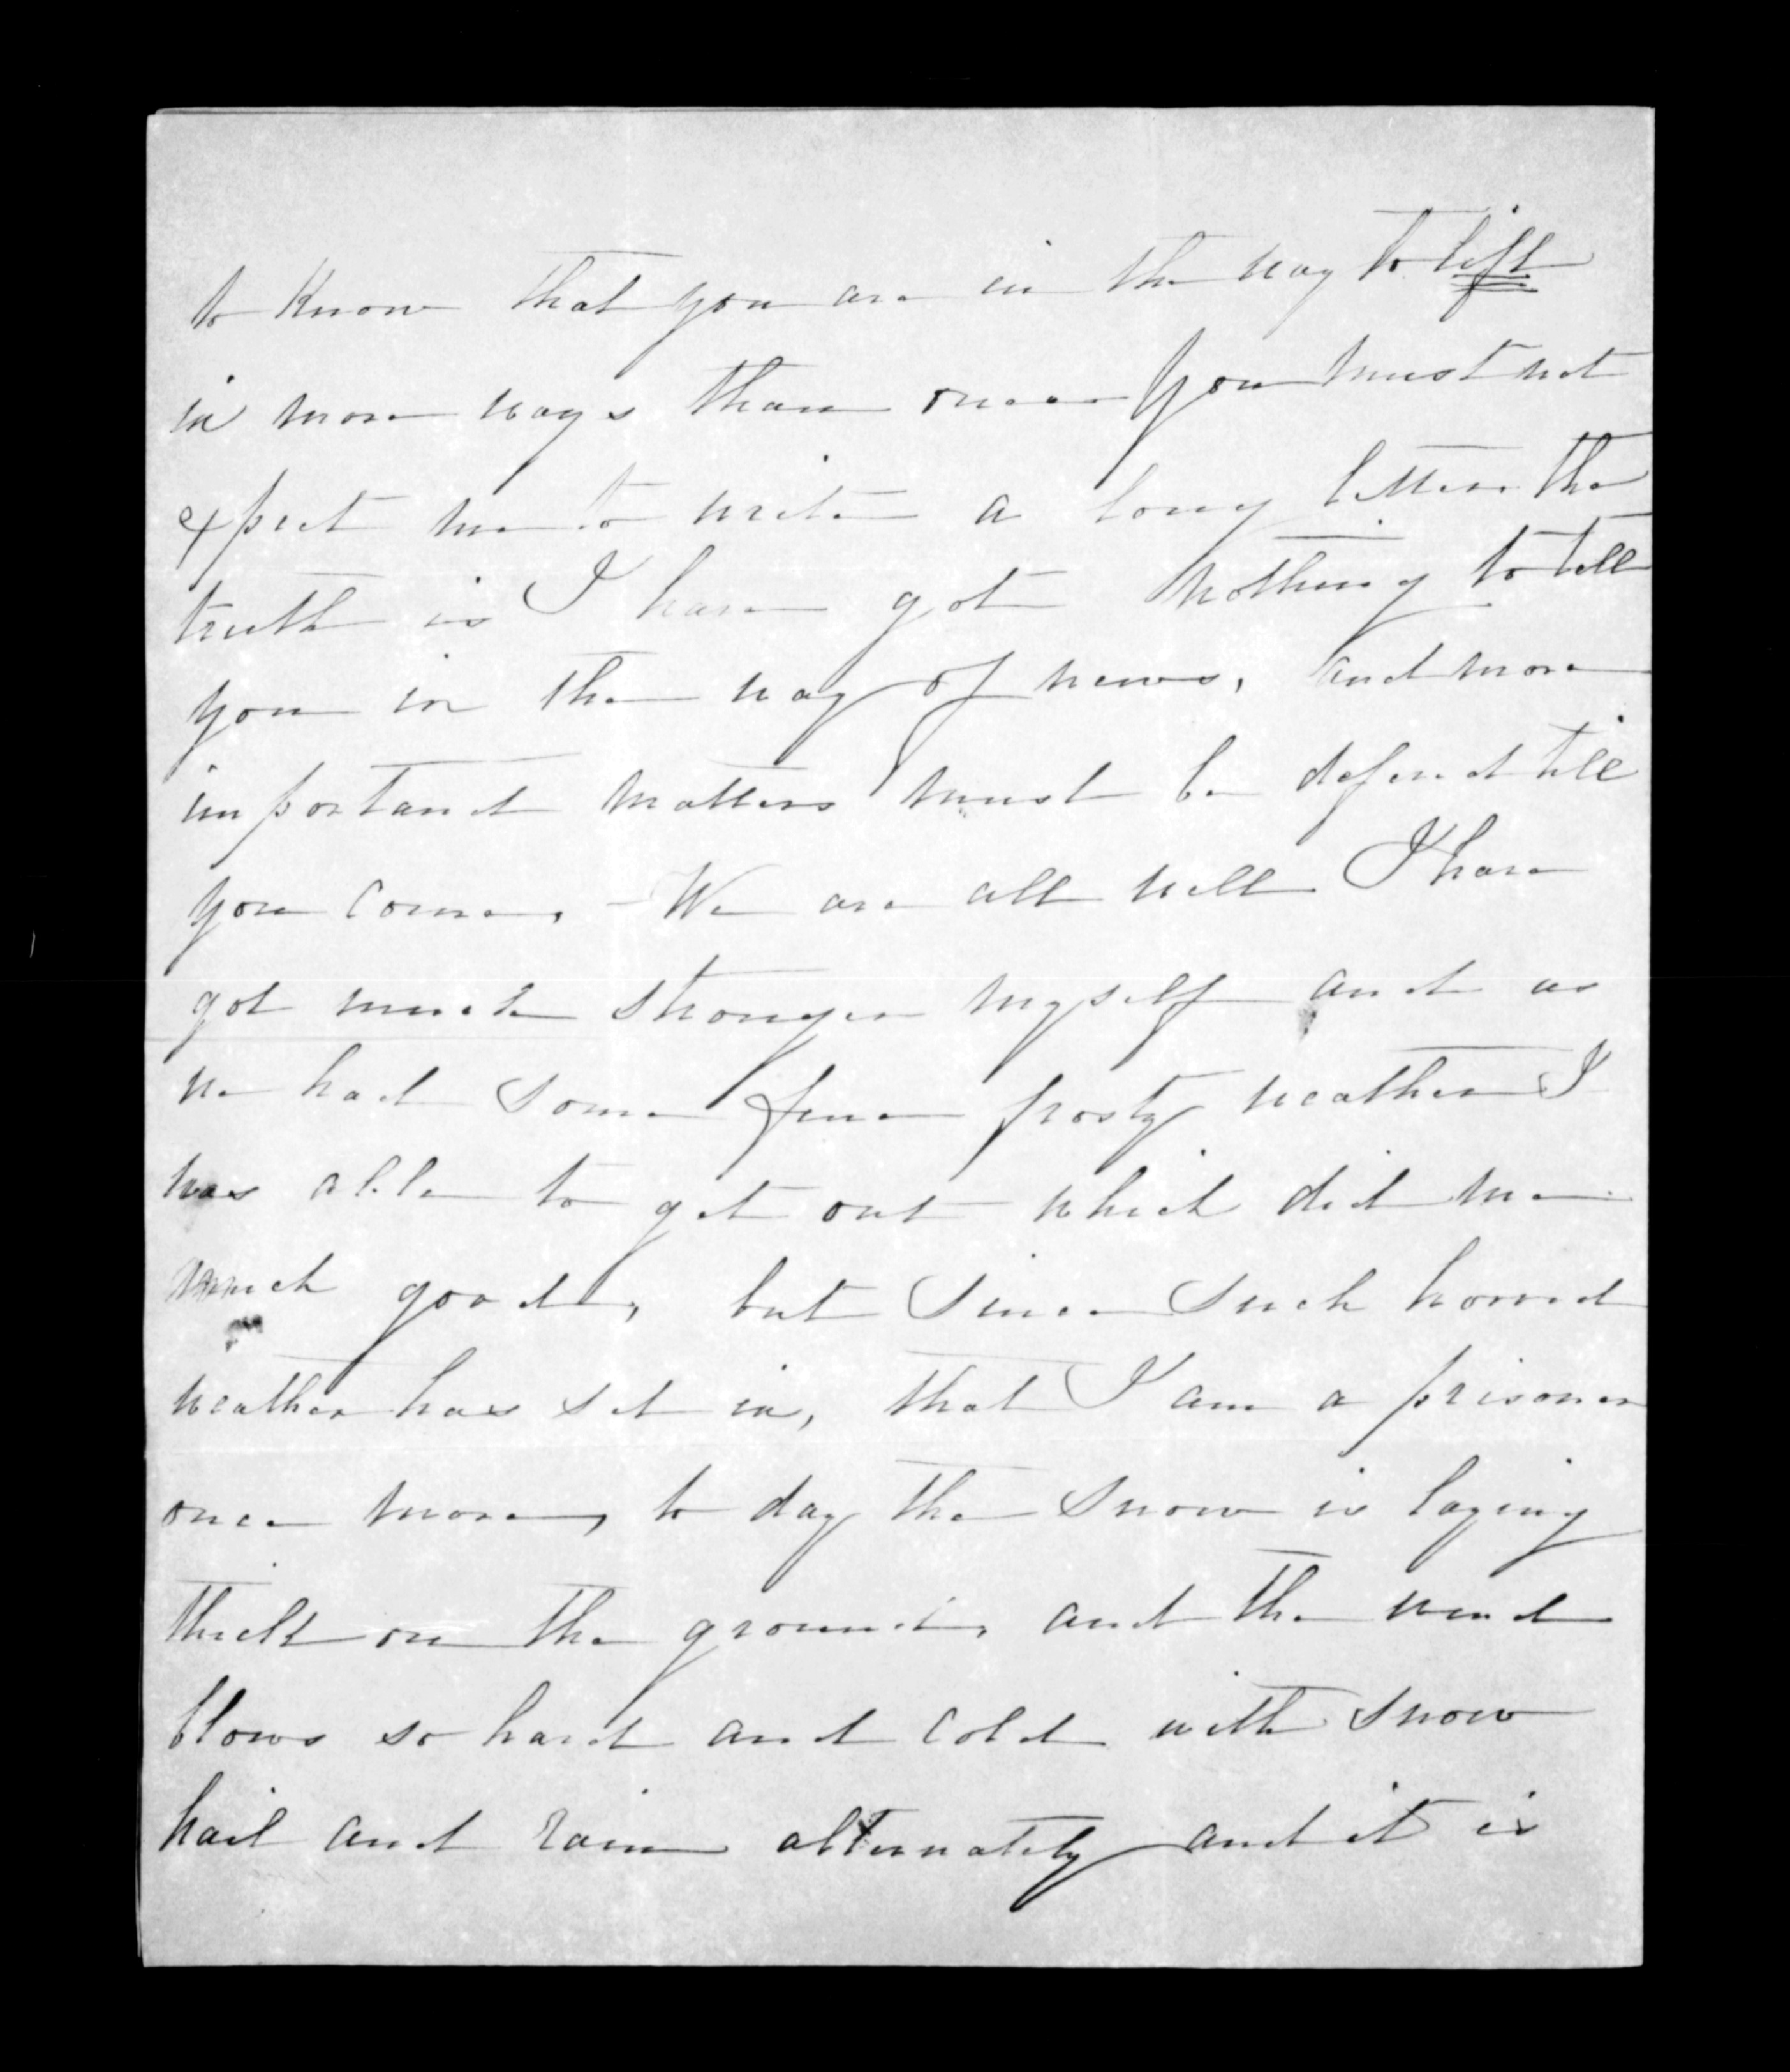 to know that you are in the way to lift
in more ways than one You must not
expect me to write a long letter the
truth is I have got nothing to tell
you in the way of news, and more
important matters must be deferd till
you come, - We are all well I have
got much stronger myself and as
we had some fine frosty weather I
was able to get out which did me
much good, but since such horrid
weather has set in, that I am a prisoner
once more, to day the snow is laying
thick on the ground, and the wind
blows so hard and cold with snow
hail and rain alternately and it is